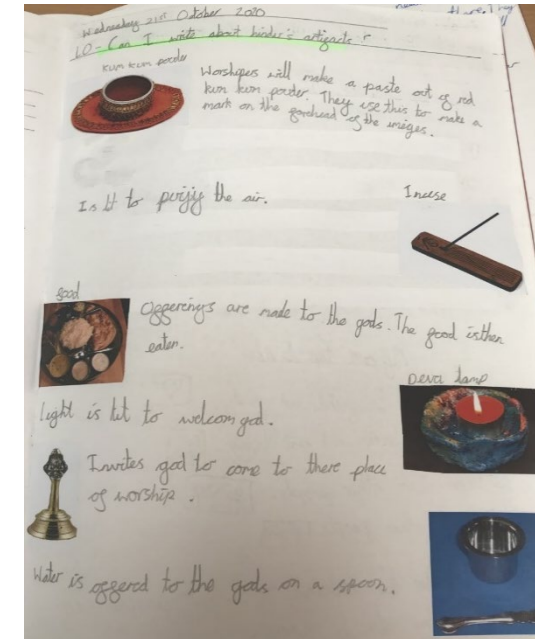 Wednesday 21st October 2020
LO - Can I write about hindu's artifacts
kum kum powder
Worshipers will make a paste out of red
kum kum powder. They use this to make a
mark on the forehead of the imiges.
Incese
Is lit to purify the air.
food
Offerenys are made to the gods. The food isthen
eaten.
Deva lamp
light is lit to welcom god.
Invites god to come to there place
of worship.
Water is offered to the gods on a spoon.